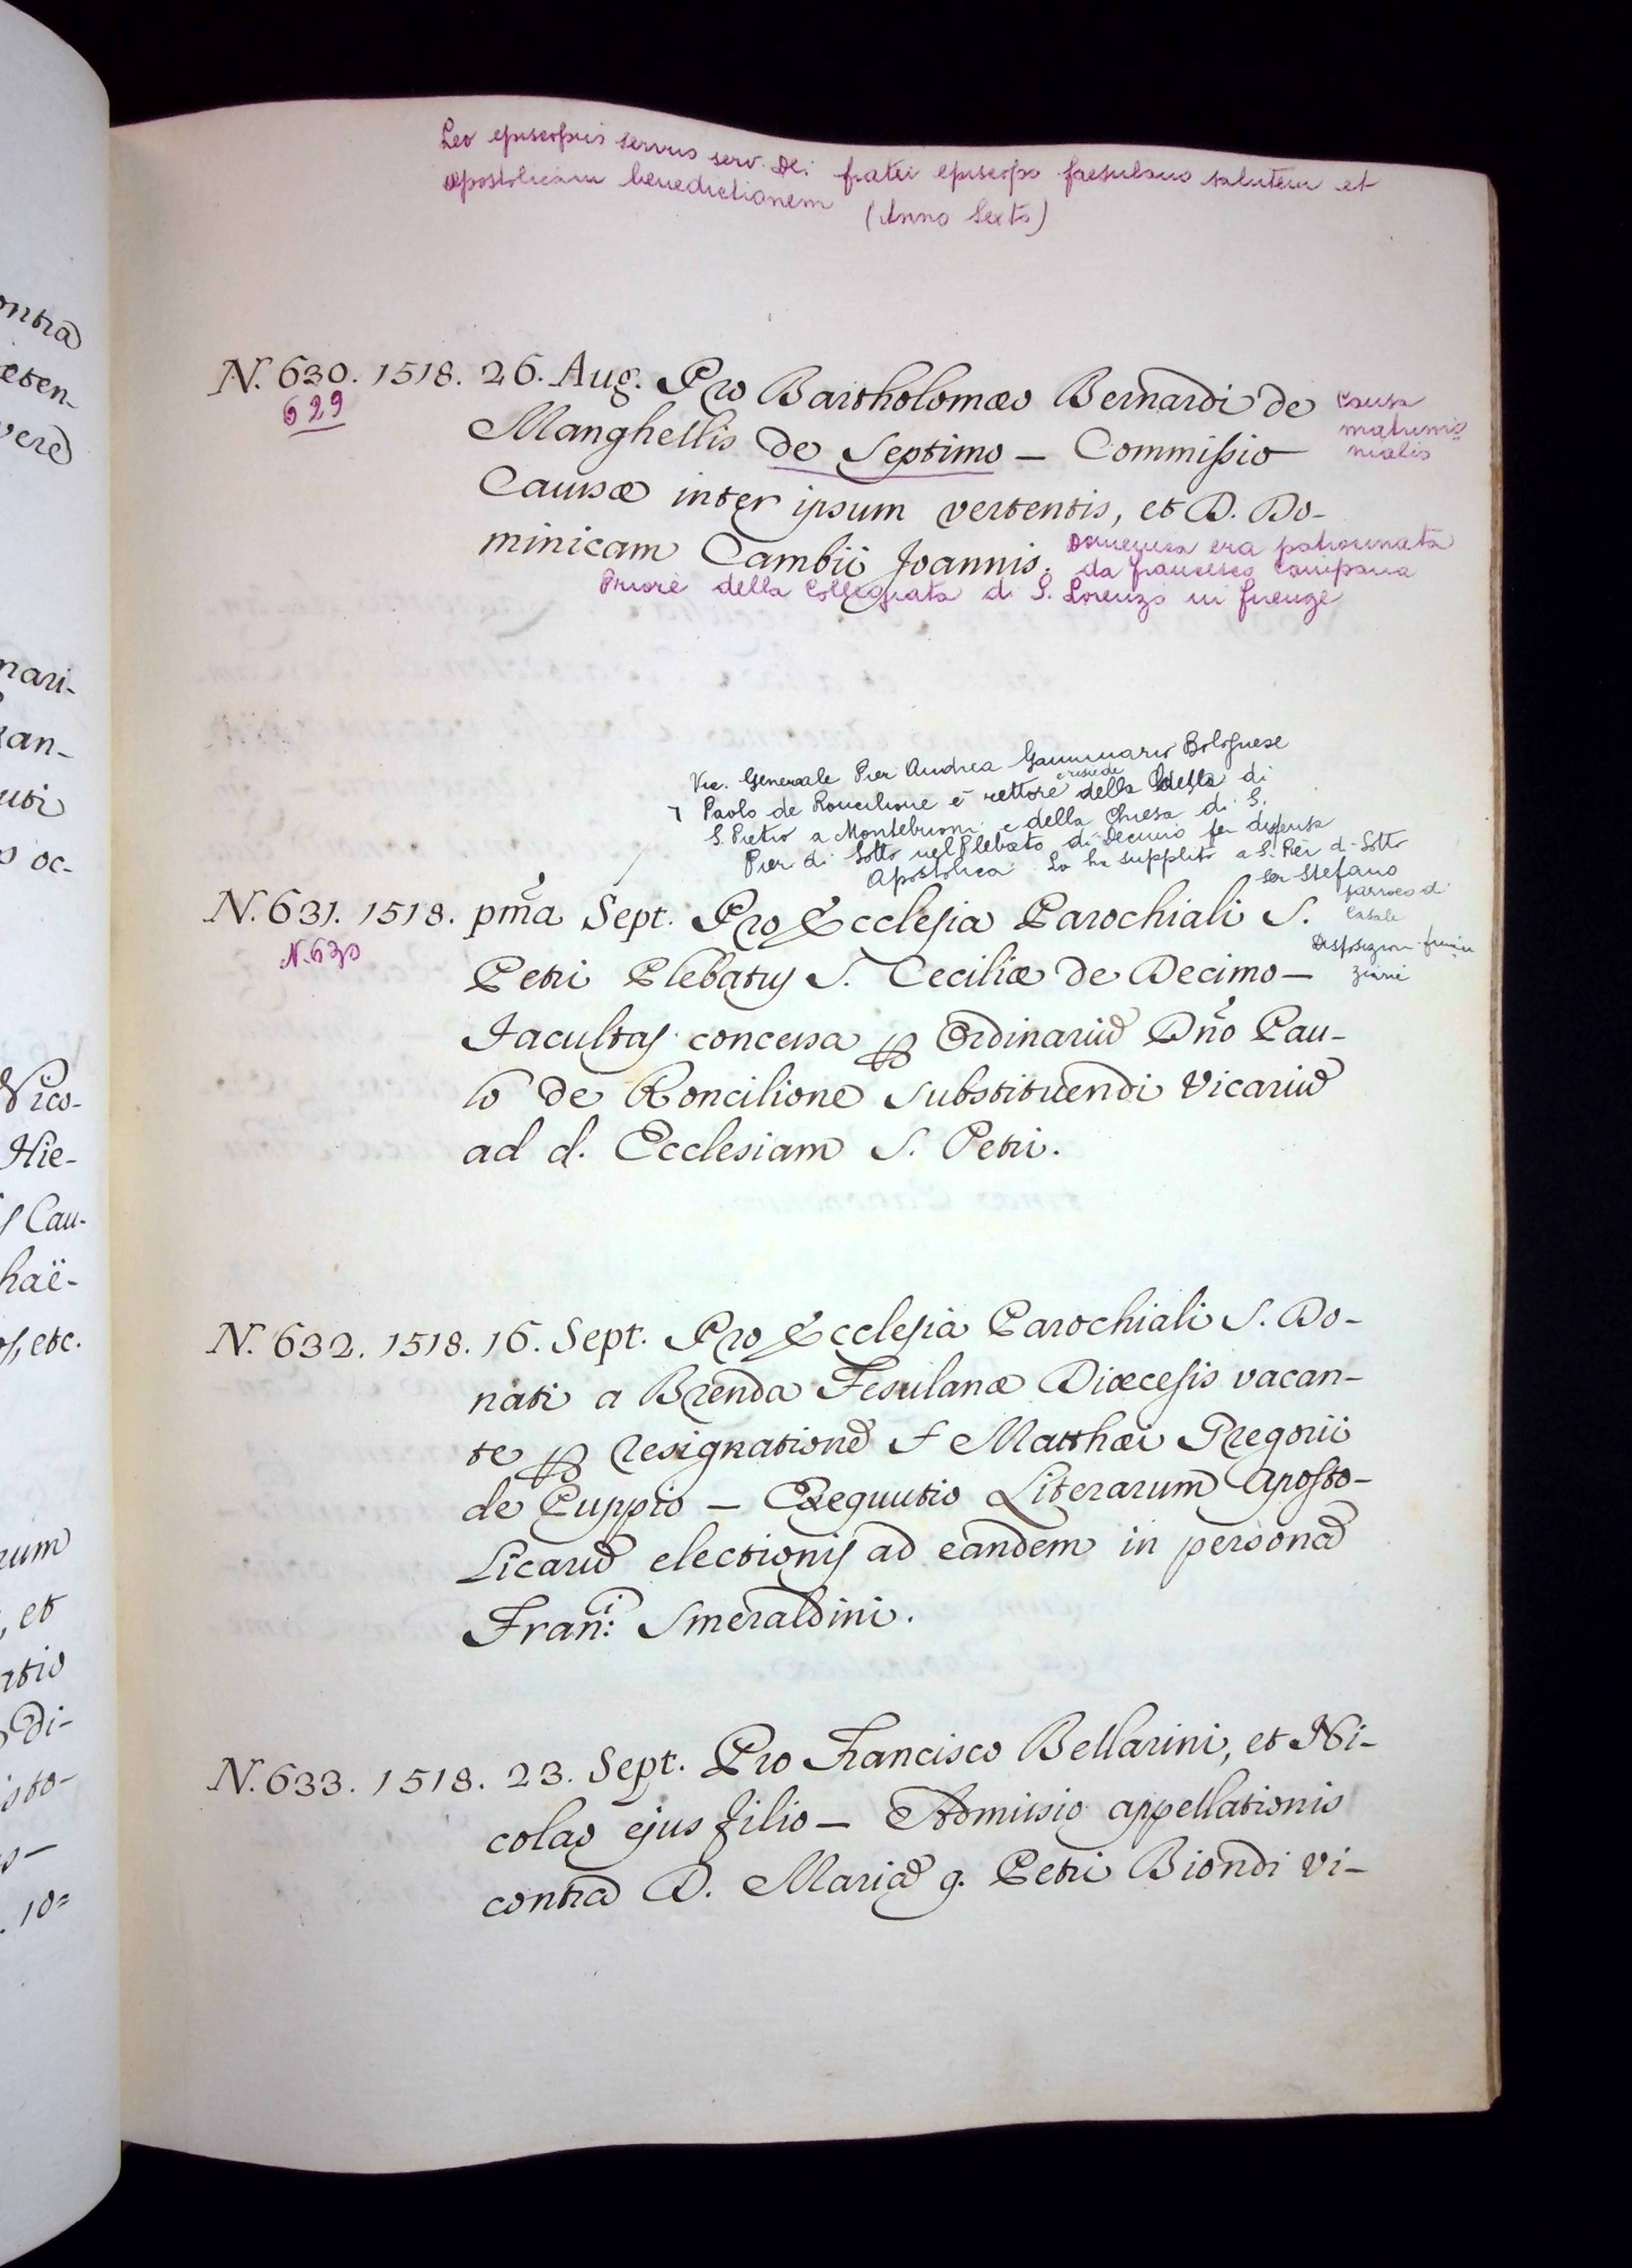 Leo episcopus servus serv. Dei fratri episcopo faesulano salutem et
apostolicam benedictionem (Anno Sexto)
N. 630. 1518. 26. Aug. Pro Bartholomæo Bernardi de
629
Manghellis de Septimo — Commissio
Causa
matrimo=
nialis
Causæ inter ipsum vertentis, et D. Do-
minicam Cambii Joannis.
Domenica era patrocinata
da francesco Campana
Priore della Collegiata di S. Lorenzo in firenze
Vic. Generale Pier Andrea Gammaro Bolognese
Paolo de Roncilione è rettore e risiede della Badia di
S. Pietro a Montebuoni e della Chiesa di S.
Pier di Sotto nel Plebato di Decimo per dispensa
Apostolica. Lo ha supplito a S. Pier di Sotto
ser Stefano
parroco di
Casale
N. 631. 1518. pma Sept. Pro Ecclesia Parochiali S.
N. 630
Petri Plebatus S. Ceciliæ de Decimo —
Facultas concessa p Ordinariu Dno Pau-
lo de Roncilione substituendi Vicariu
ad d. Ecclesiam S. Petri.
N. 632. 1518. 16. Sept. Pro Ecclesia Parochiali S. Do-
nati a Brenda Fesulanæ Diœcesis vacan-
te p resignatione f Matthæi Gregorii
de Puppio — Exequutio Literarum Aposto-
licaru electionis ad eandem in persona
Fran:i Smeraldini.
N. 633. 1518. 23. Sept. Pro Francisco Bellarini, et Ni-
colao ejus filio — Admissio appellationis
contra D. Maria q. Petri Biondi vi-